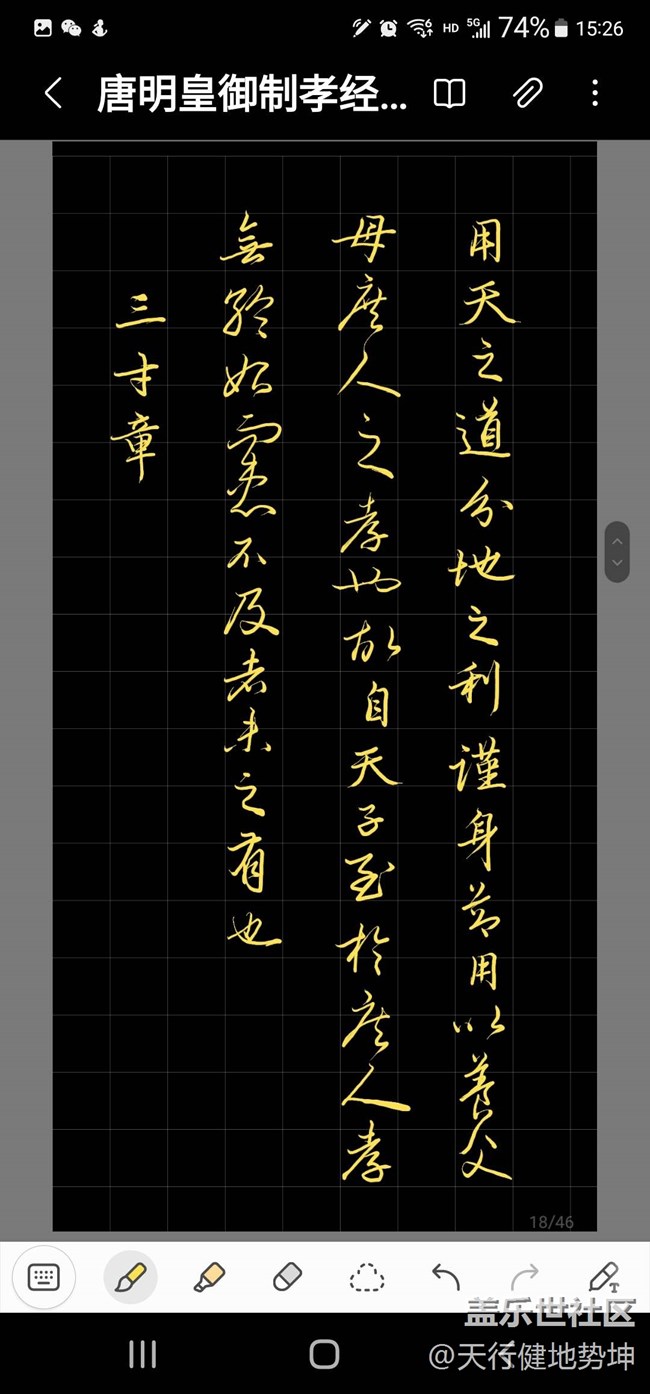 HD 5G 74% 15:26
唐明皇御制孝经...
用天之道分地之利謹身節用以養父
母庶人之孝也故自天子至於庶人孝
無終始而患不及者未之有也
三才章
18/46
T
盖乐世社区
@天行健地势坤